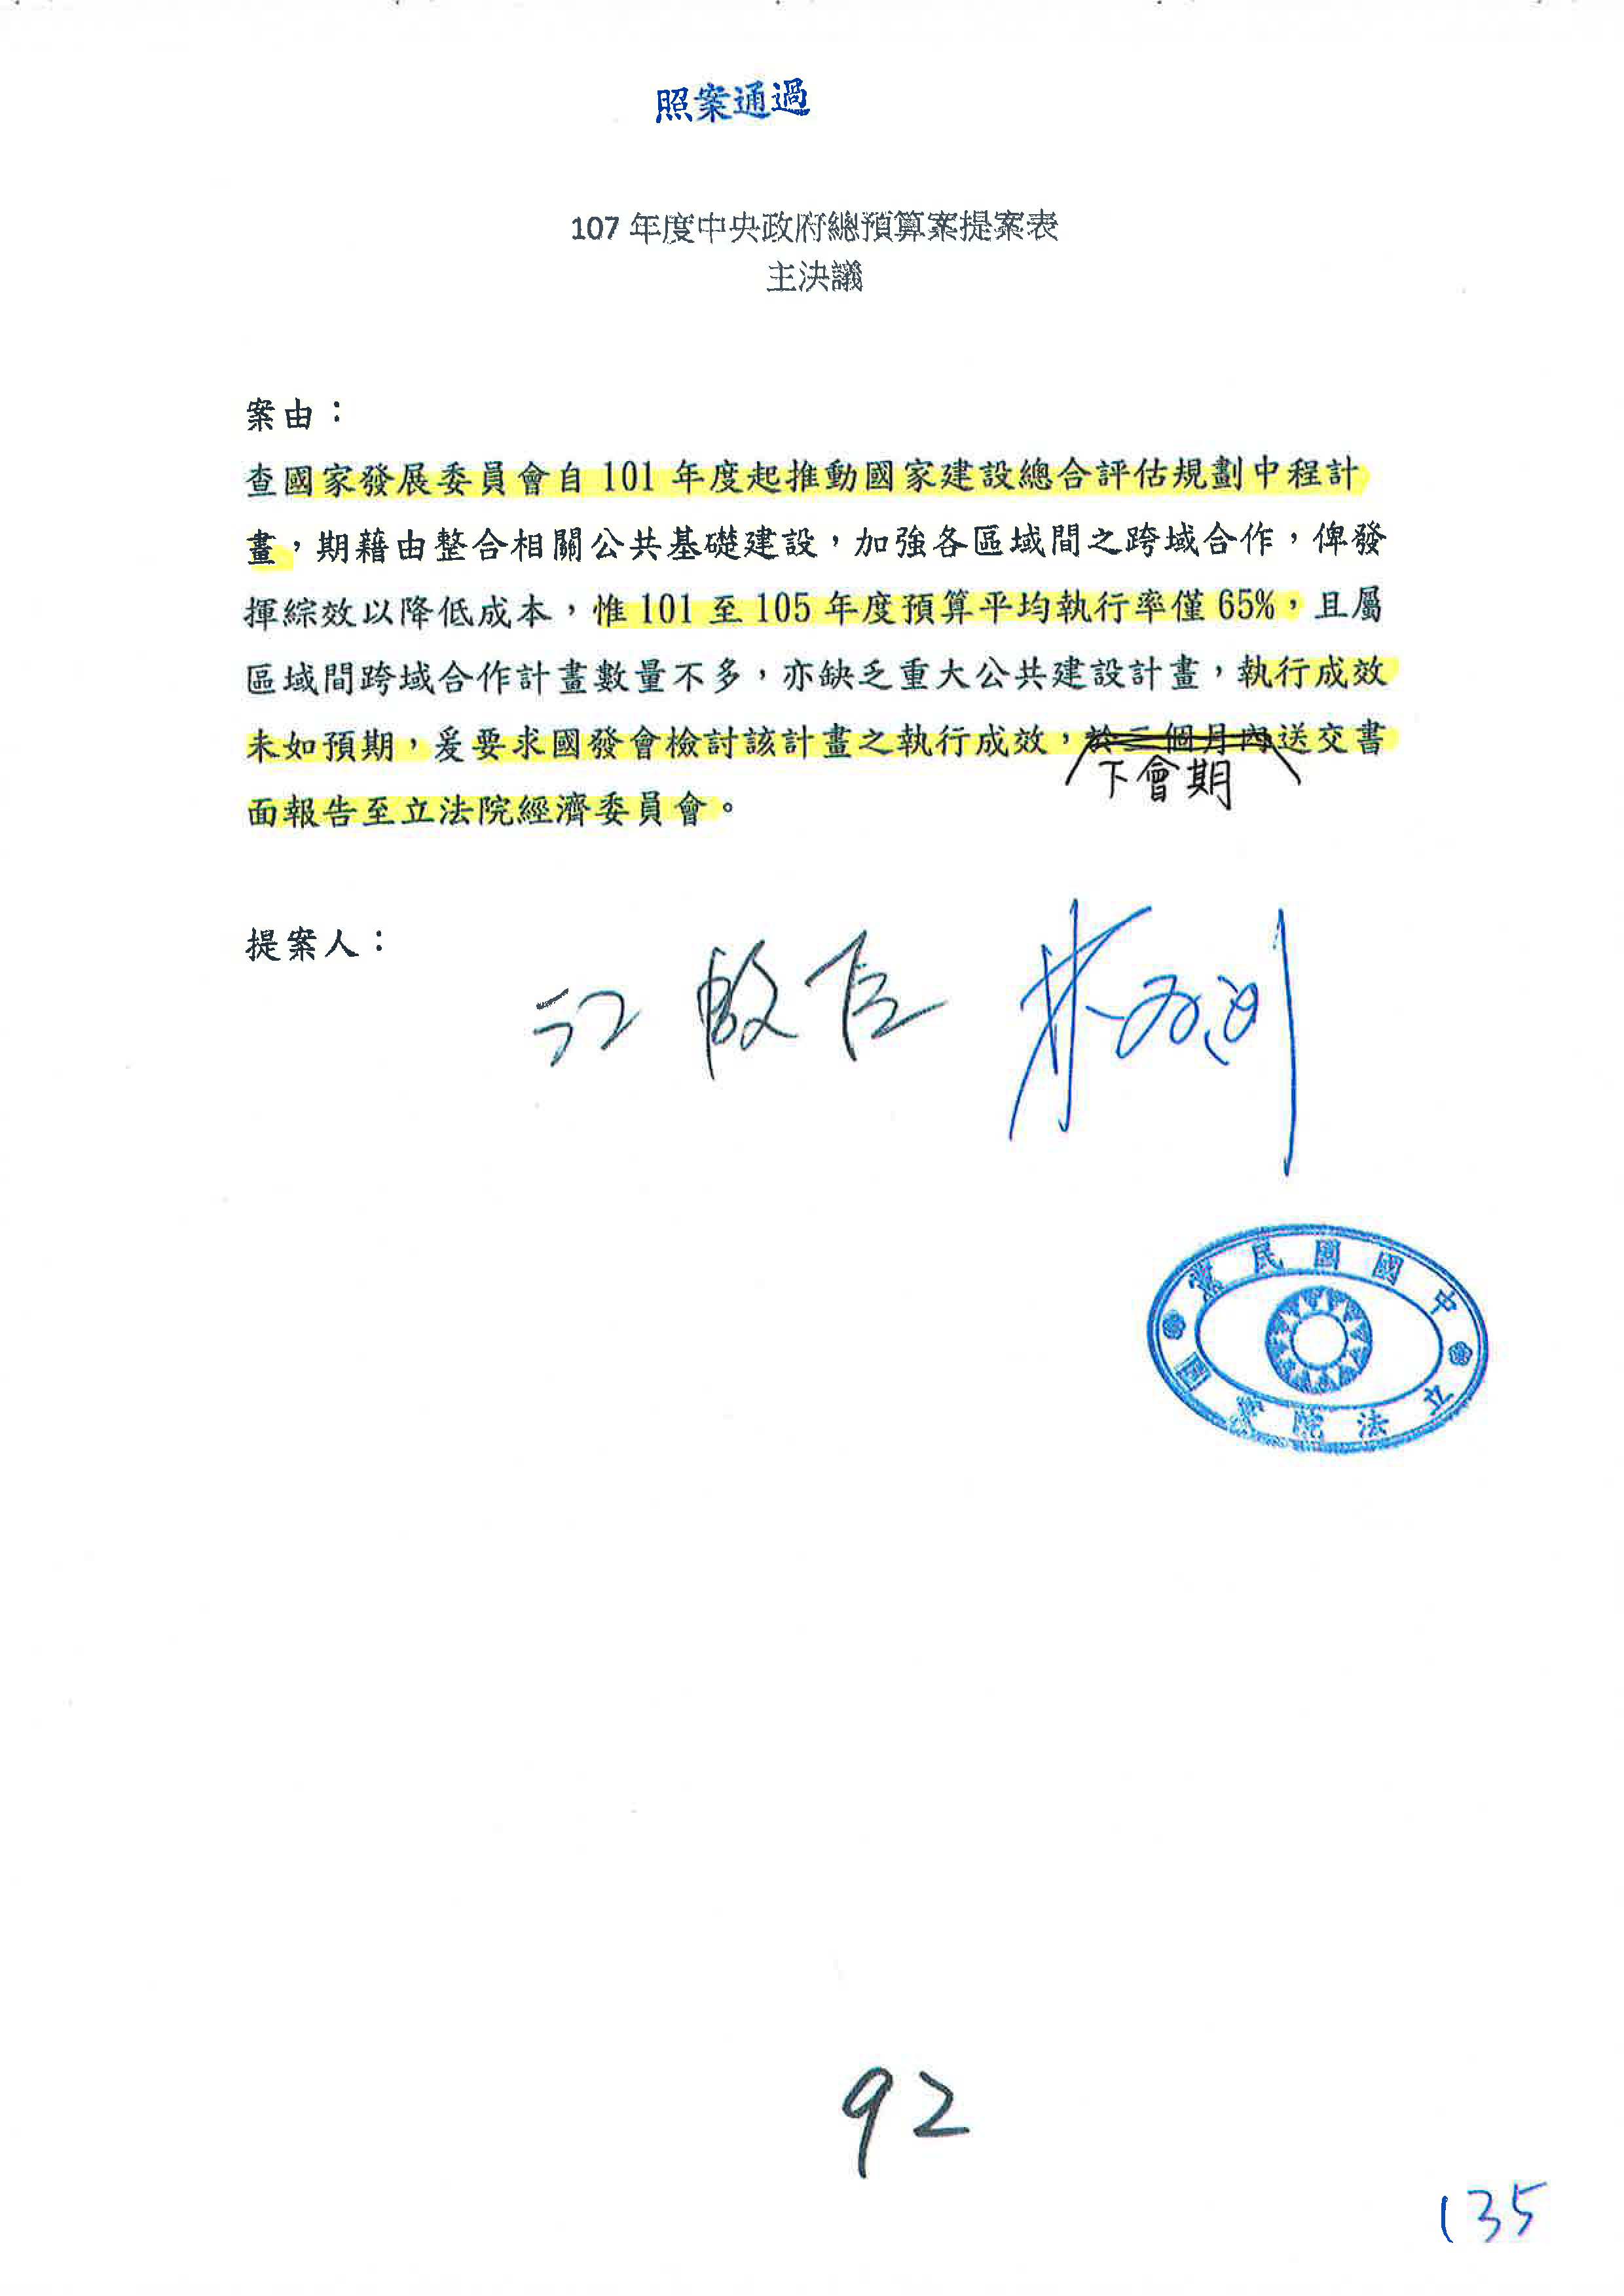 照案通過
107 年度中央政府總預算案提案表
主決議
案由：
查國家發展委員會自 101 年度起推動國家建設總合評估規劃中程計
畫，期藉由整合相關公共基礎建設，加強各區域間之跨域合作，俾發
揮綜效以降低成本，惟 101 至 105 年度預算平均執行率僅 65%，且屬
區域間跨域合作計畫數量不多，亦缺乏重大公共建設計畫，執行成效
未如預期，爰要求國發會檢討該計畫之執行成效，於三個月內送交書
下會期
面報告至立法院經濟委員會。
提案人：
江啟臣
中國國民黨
立法院黨團
92
135